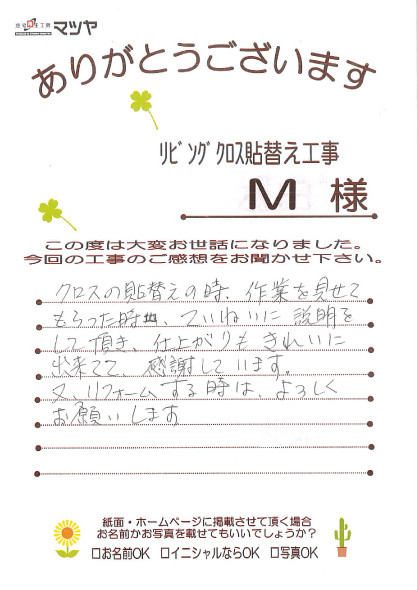 マツヤ
ありがとうございます
ﾘﾋﾞﾝｸﾞ ｸﾛｽ貼替え工事
M 様
この度は大変お世話になりました。
今回の工事のご感想をお聞かせ下さい。
クロスの貼替えの時、作業を見せて
もらった時、ていねいに説明を
して頂き、仕上がりもきれいに
出来てて、感謝しています。
又、リフォームする時は、よろしく
お願いします
紙面・ホームページに掲載させて頂く場合
お名前かお写真を載せてもいいでしょうか?
□お名前OK □イニシャルならOK □写真OK